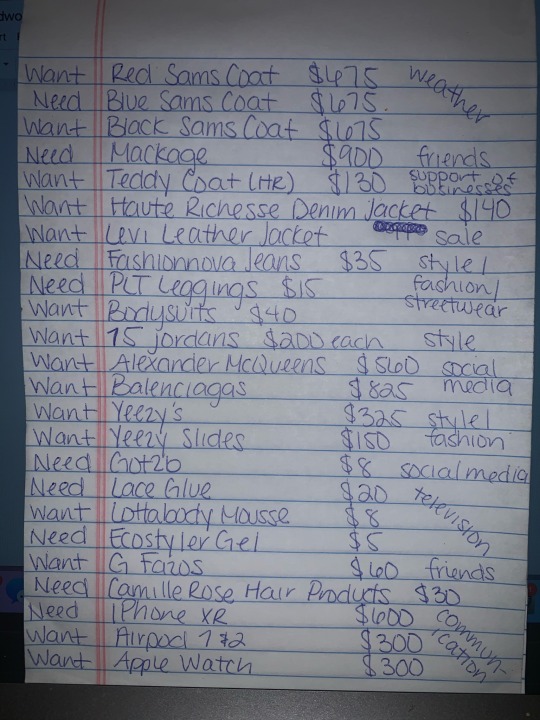 Want Red Sams Coat $675 weather
Need Blue Sams Coat $675.
Want Black Sams Coat $675
Need Mackage $900 friends
Want Teddy Coat (HR) $130 support of businesses
Want Haute Richesse Denim Jacket $140
Want Levi Leather Jacket sale
Need Fashionnova Jeans $35 style/
Need PLT Leggings $15 fashion/
Want Bodysuits $40 streetwear
Want 15 jordans $200 each style
Want Alexander McQueens $560 social
Want Balenciagas $825 media
Want Yeezy's $325 style/
Want Yeezy Slides $150 fashion
Need Got2b $8 social media
Need Lace Glue $20 television
Want Lottabody Mousse $8
Need Ecostyler Gel $5
Want G Fazos $60 friends
Need Camille Rose Hair Products $30
Need iPhone XR $600 commun-
Want Airpod 1 & 2 $300 ication
Want Apple Watch $300